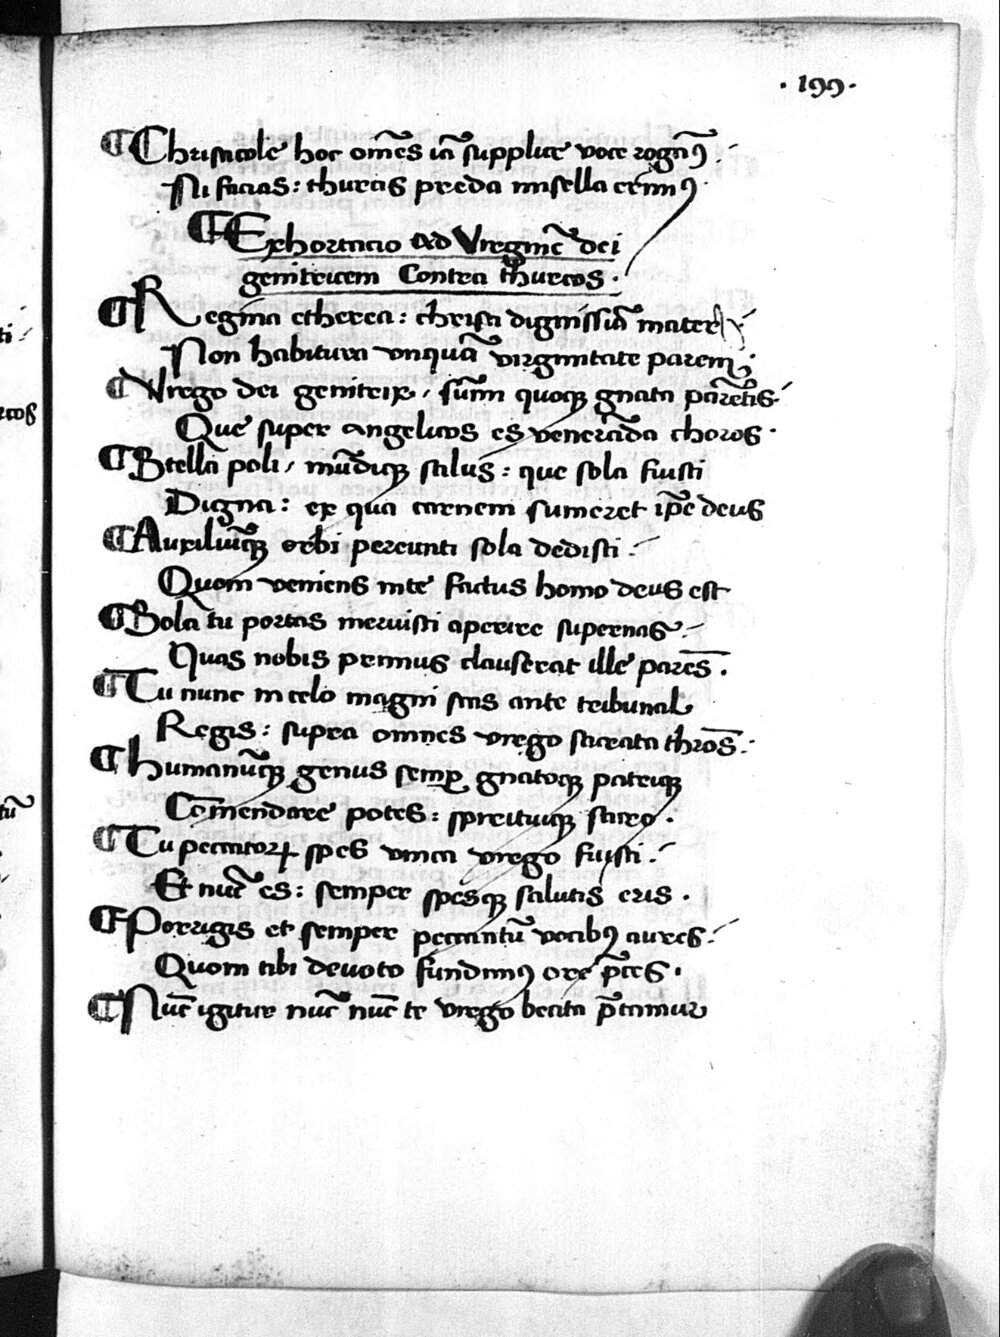 · 199 ·
¶ Christicole hoc om̄es iā supplice voce rogāꝰ
Ni facias: thurcis preda misella erimꝰ
¶ Exhortacio ad Virginē dei
genitricem Contra thurcos ·
¶ Regina etherea: christi dignissīa mater
Non habitura vnquā virginitate parem
¶ Virgo dei genitrix, sūmi quoqꝫ gnata parētis
Que super angelicos es venerāda choros ·
¶ Stella poli, mūdiqꝫ salus: que sola fuisti
Digna: ex qua carnem sumeret ip̄e deus
¶ Auxiliūqꝫ orbi pereunti sola dedisti
Quom veniens in te factus homo deus est
¶ Sola tu portas meruisti aperire supernas
Quas nobis primus clauserat ille parēs ·
¶ Tu nunc in celo magni stas ante tribunal
Regis: supra omnes virgo sacrata thronōs
¶ humanūqꝫ genus semꝑ gnatoqꝫ patriqꝫ
Cōmendare potes: spirituiqꝫ sacro ·
¶ Tu peccatoꝝ spes vnica virgo fuisti
Et nūc es: semper spesqꝫ salutis eris ·
¶ Porrigis et semper peccantū vocibꝰ aures
Quom tibi deuoto fundimꝰ ore p̄ces ·
¶ Nūc igitur nūc nūc te virgo beata p̄camur